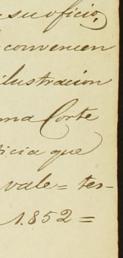 su oficio,
convencen
ilustracion
ma Corte
icia que
vale = tes-
1.852 =